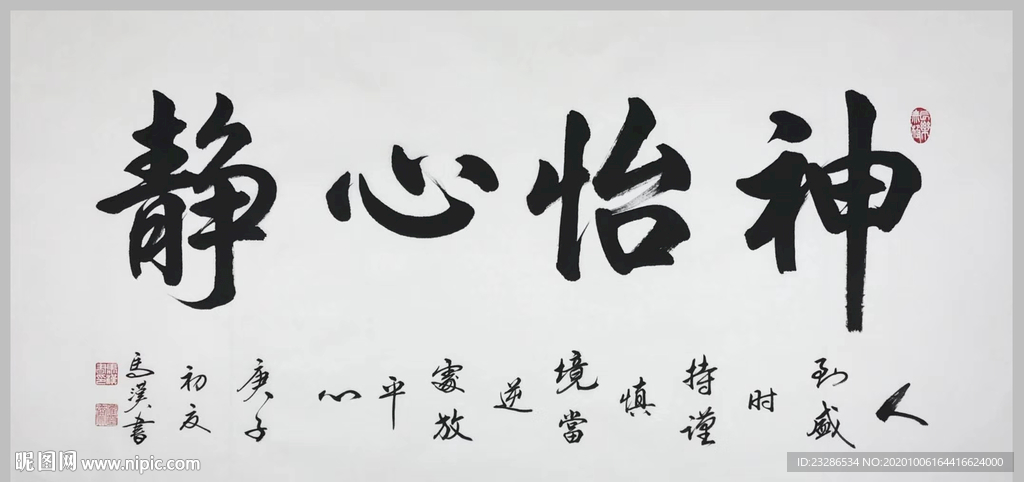 神怡心静
人
到盛
时
持谨
慎
境當
逆
處放
平
心
庚子
初夏
馬漢書
昵图网 www.nipic.com
ID:23286534 NO:20201006164416624000